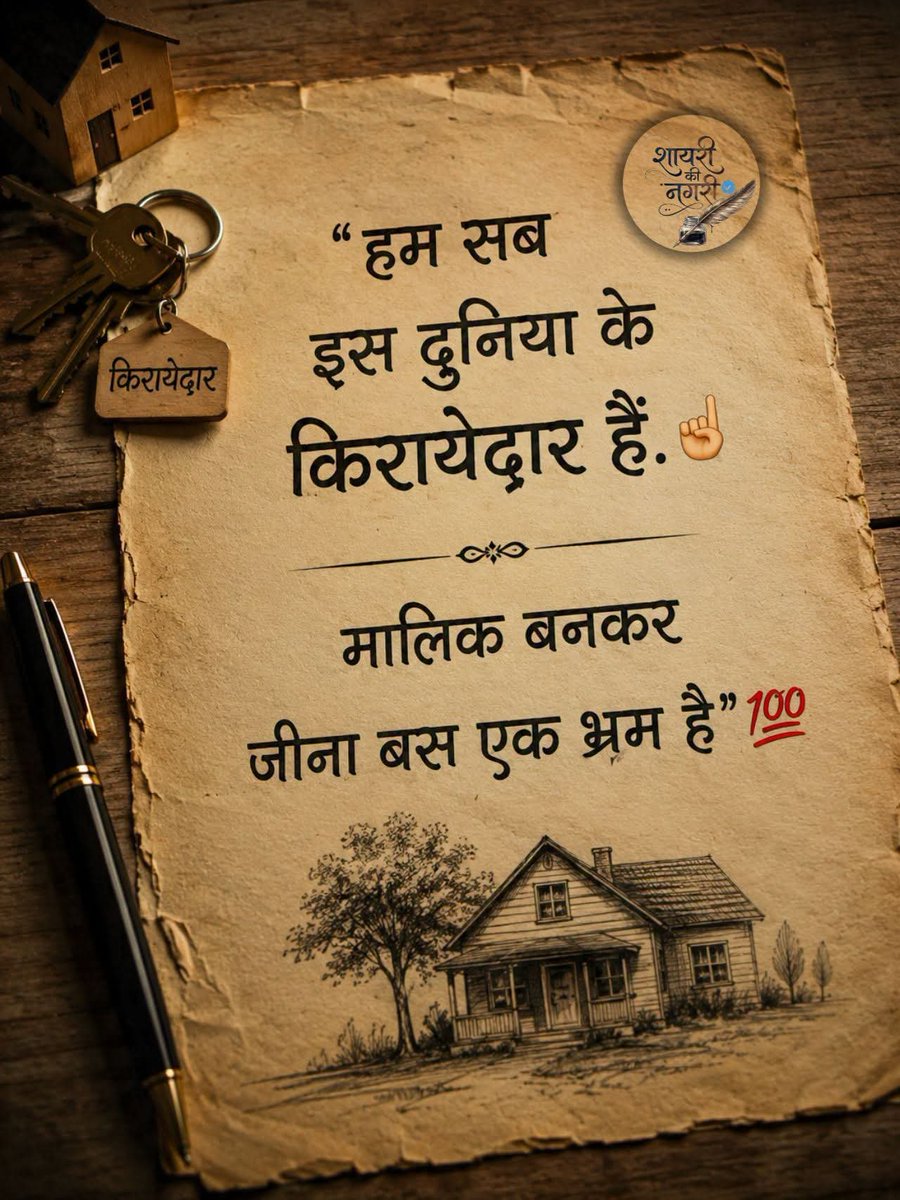 शायरी
की
नगरी
“हम सब
इस दुनिया के
किरायेदार हैं.☝
किरायेदार
मालिक बनकर
जीना बस एक भ्रम है”💯